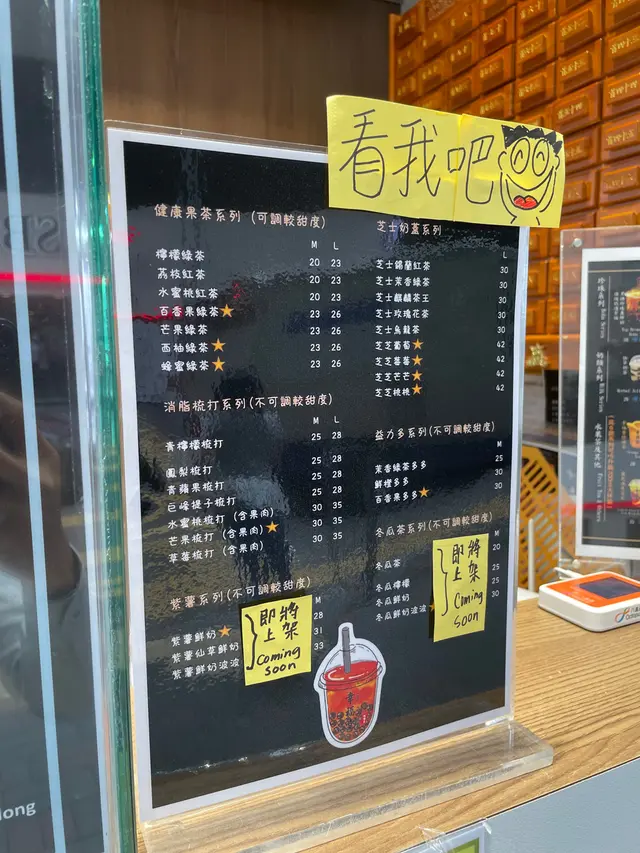 看我吧
健康果茶系列 (可調較甜度)
M L
檸檬綠茶 20 23
荔枝紅茶 20 23
水蜜桃紅茶 20 23
百香果綠茶 23 26
芒果綠茶 23 26
西柚綠茶 23 26
蜂蜜綠茶 23 26
消脂梳打系列(不可調較甜度)
M L
青檸檬梳打 25 28
鳳梨梳打 25 28
青蘋果梳打 25 28
巨峰提子梳打 25 28
水蜜桃梳打 (含果肉) 30 35
芒果梳打 (含果肉) 30 35
草莓梳打 (含果肉) 30 35
紫薯系列(不可調較甜度)
M
紫薯鮮奶 28
紫薯仙草鮮奶 31
紫薯鮮奶波波 33
即將
上架
Coming
soon
芝士奶蓋系列
L
芝士錦蘭紅茶 30
芝士茉香綠茶 30
芝士麒麟茶王 30
芝士玫瑰花茶 30
芝士烏龍茶 30
芝芝葡萄 42
芝芝莓莓 42
芝芝芒芒 42
芝芝桃桃 42
益力多系列(不可調較甜度)
M
茉香綠茶多多 25
鮮橙多多 30
百香果多多 30
冬瓜茶系列(不可調較甜度)
M
冬瓜茶 20
冬瓜檸檬 25
冬瓜鮮奶 25
冬瓜鮮奶波波 30
即將
上架
Coming
soon
long